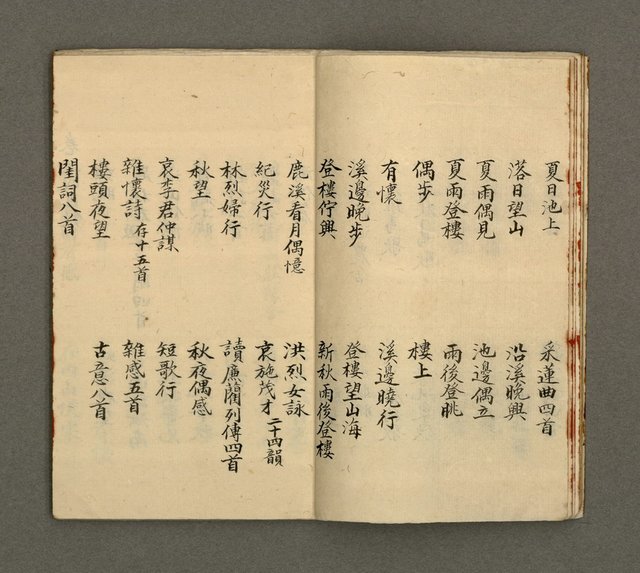 夏日池上
采蓮曲四首
落日望山
沿溪晚興
夏雨偶見
池邊偶立
夏雨登樓
雨後登眺
偶步
樓上
有懷
溪邊曉行
溪邊晚步
登樓望山海
登樓佇興
新秋雨後登樓
鹿溪看月偶憶
洪烈女詠
紀災行
哀施茂才二十四韻
林烈婦行
讀廉藺列傳四首
秋望
秋夜偶感
哀李君仲謀
短歌行
雜懷詩存十五首
雜感五首
樓頭夜望
古意八首
閨詞八首